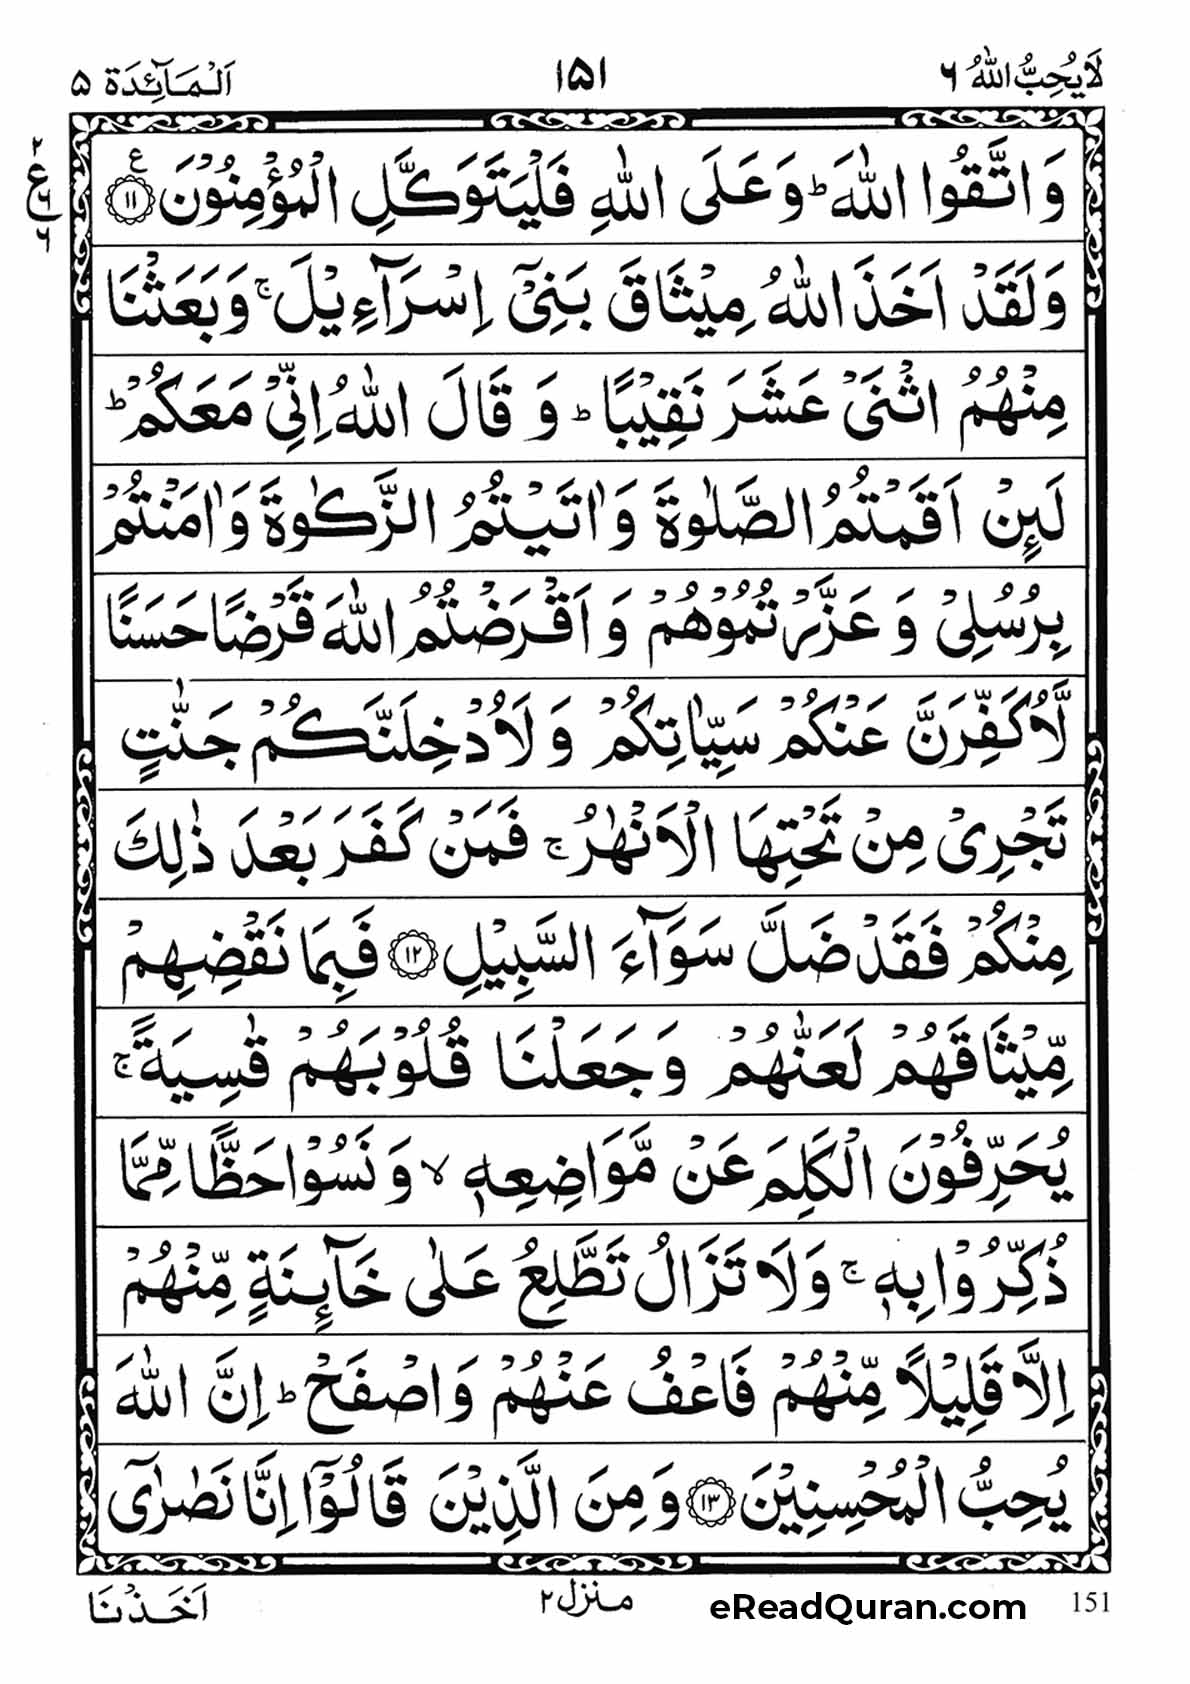 لَا يُحِبُّ اللّٰهُ ٦
١٥١
اَلْمَآئِدَة ٥
وَ اتَّقُوا اللّٰهَ ؕ وَ عَلَى اللّٰهِ فَلْيَتَوَكَّلِ الْمُؤْمِنُوْنَ ﴿١١﴾ ع
٢
ع
٦
٦
وَ لَقَدْ اَخَذَ اللّٰهُ مِيْثَاقَ بَنِيْۤ اِسْرَآءِيْلَ ۚ وَ بَعَثْنَا
مِنْهُمُ اثْنَيْ عَشَرَ نَقِيْبًا ؕ وَ قَالَ اللّٰهُ اِنِّيْ مَعَكُمْ ؕ
لَئِنْ اَقَمْتُمُ الصَّلٰوةَ وَ اٰتَيْتُمُ الزَّكٰوةَ وَ اٰمَنْتُمْ
بِرُسُلِيْ وَ عَزَّرْتُمُوْهُمْ وَ اَقْرَضْتُمُ اللّٰهَ قَرْضًا حَسَنًا
لَّاُكَفِّرَنَّ عَنْكُمْ سَيِّاٰتِكُمْ وَ لَاُدْخِلَنَّكُمْ جَنّٰتٍ
تَجْرِيْ مِنْ تَحْتِهَا الْاَنْهٰرُ ۚ فَمَنْ كَفَرَ بَعْدَ ذٰلِكَ
مِنْكُمْ فَقَدْ ضَلَّ سَوَآءَ السَّبِيْلِ ﴿١٢﴾ فَبِمَا نَقْضِهِمْ
مِّيْثَاقَهُمْ لَعَنّٰهُمْ وَ جَعَلْنَا قُلُوْبَهُمْ قٰسِيَةً ۚ
يُحَرِّفُوْنَ الْكَلِمَ عَنْ مَّوَاضِعِهٖ ۙ وَ نَسُوْا حَظًّا مِّمَّا
ذُكِّرُوْا بِهٖ ۚ وَ لَا تَزَالُ تَطَّلِعُ عَلٰى خَآئِنَةٍ مِّنْهُمْ
اِلَّا قَلِيْلًا مِّنْهُمْ فَاعْفُ عَنْهُمْ وَ اصْفَحْ ؕ اِنَّ اللّٰهَ
يُحِبُّ الْمُحْسِنِيْنَ ﴿١٣﴾ وَ مِنَ الَّذِيْنَ قَالُوْۤا اِنَّا نَصٰرٰۤى
151
eReadQuran.com
منزل ٢
اَخَذْنَا